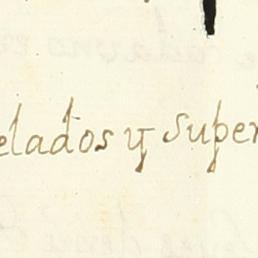 elados y super